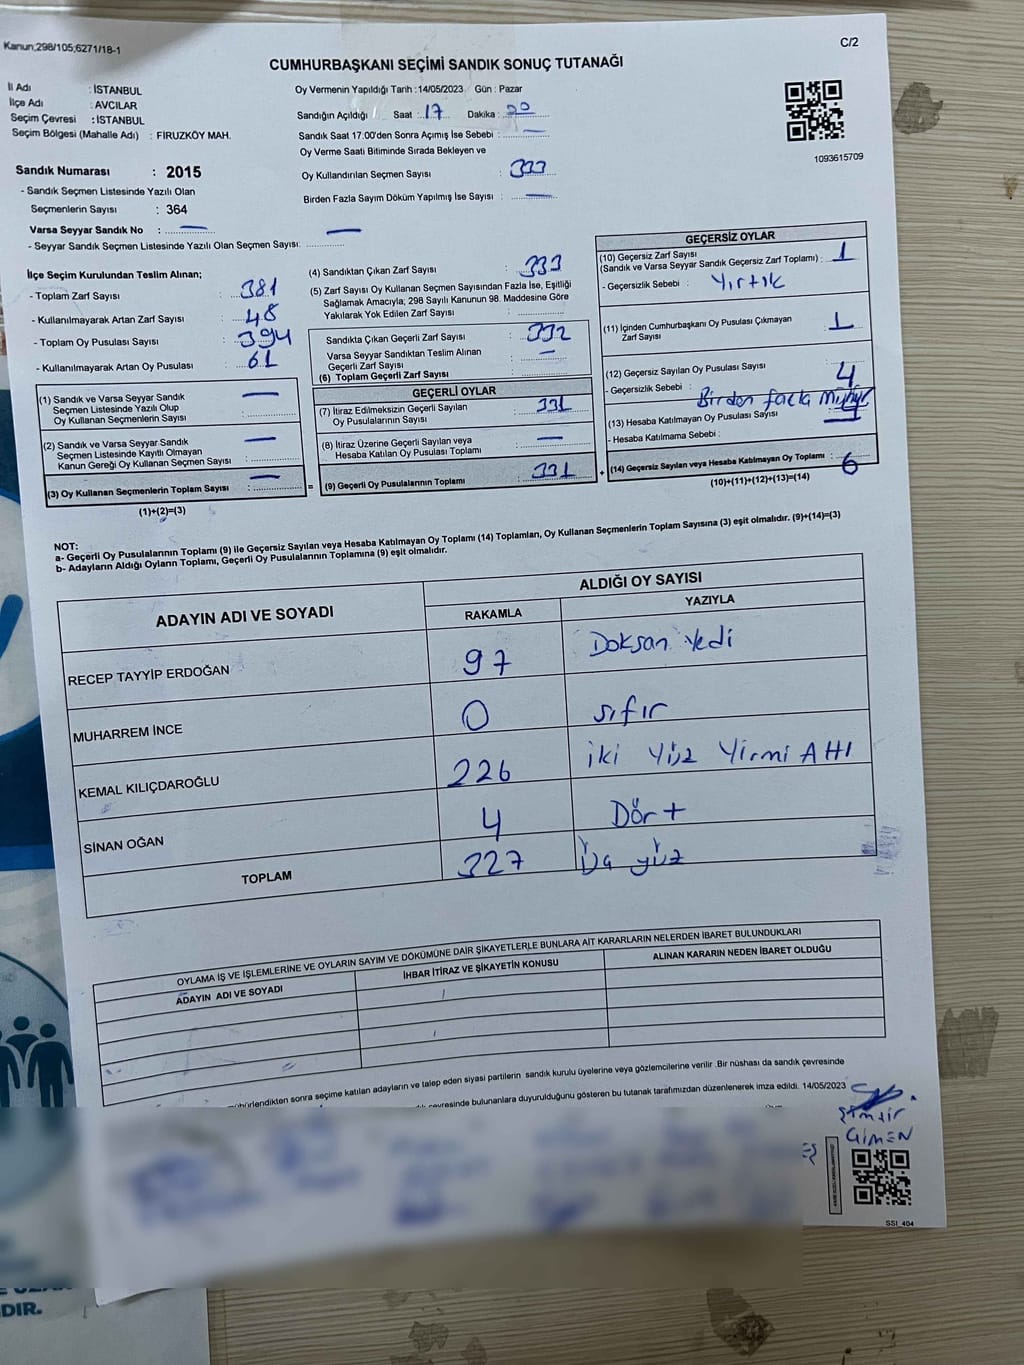 Kanun;298/105;6271/18-1
C/2
CUMHURBAŞKANI SEÇİMİ SANDIK SONUÇ TUTANAĞI
İl Adı : İSTANBUL
İlçe Adı : AVCILAR
Seçim Çevresi : İSTANBUL
Seçim Bölgesi (Mahalle Adı) : FİRUZKÖY MAH.
Sandık Numarası : 2015
- Sandık Seçmen Listesinde Yazılı Olan
Seçmenlerin Sayısı : 364
Varsa Seyyar Sandık No : —
- Seyyar Sandık Seçmen Listesinde Yazılı Olan Seçmen Sayısı: —
Oy Vermenin Yapıldığı Tarih : 14/05/2023 Gün : Pazar
Sandığın Açıldığı Saat : 17 Dakika : 20
Sandık Saat 17:00'den Sonra Açımış İse Sebebi : —
Oy Verme Saati Bitiminde Sırada Bekleyen ve
Oy Kullandırılan Seçmen Sayısı : 333
Birden Fazla Sayım Döküm Yapılmış İse Sayısı : —
1093615709
İlçe Seçim Kurulundan Teslim Alınan;
- Toplam Zarf Sayısı : 381
- Kullanılmayarak Artan Zarf Sayısı : 48
- Toplam Oy Pusulası Sayısı : 394
- Kullanılmayarak Artan Oy Pusulası : 61
(1) Sandık ve Varsa Seyyar Sandık
Seçmen Listesinde Yazılı Olup
Oy Kullanan Seçmenlerin Sayısı : —
(2) Sandık ve Varsa Seyyar Sandık
Seçmen Listesinde Kayıtlı Olmayan
Kanun Gereği Oy Kullanan Seçmen Sayısı : —
(3) Oy Kullanan Seçmenlerin Toplam Sayısı : —
(1)+(2)=(3)
(4) Sandıktan Çıkan Zarf Sayısı : 333
(5) Zarf Sayısı Oy Kullanan Seçmen Sayısından Fazla İse, Eşitliği
Sağlamak Amacıyla; 298 Sayılı Kanunun 98. Maddesine Göre
Yakılarak Yok Edilen Zarf Sayısı :
Sandıkta Çıkan Geçerli Zarf Sayısı : 332
Varsa Seyyar Sandıktan Teslim Alınan
Geçerli Zarf Sayısı : —
(6) Toplam Geçerli Zarf Sayısı :
GEÇERLİ OYLAR
(7) İtiraz Edilmeksizin Geçerli Sayılan
Oy Pusulalarının Sayısı : 331
(8) İtiraz Üzerine Geçerli Sayılan veya
Hesaba Katılan Oy Pusulası Toplamı : —
= (9) Geçerli Oy Pusulalarının Toplamı : 331
GEÇERSİZ OYLAR
(10) Geçersiz Zarf Sayısı
(Sandık ve Varsa Seyyar Sandık Geçersiz Zarf Toplamı) : 1
- Geçersizlik Sebebi : Yırtık
(11) İçinden Cumhurbaşkanı Oy Pusulası Çıkmayan
Zarf Sayısı : 1
(12) Geçersiz Sayılan Oy Pusulası Sayısı : 4
- Geçersizlik Sebebi : Birden fazla Mühür
(13) Hesaba Katılmayan Oy Pusulası Sayısı :
- Hesaba Katılmama Sebebi :
+ (14) Geçersiz Sayılan veya Hesaba Katılmayan Oy Toplamı : 6
(10)+(11)+(12)+(13)=(14)
NOT:
a- Geçerli Oy Pusulalarının Toplamı (9) ile Geçersiz Sayılan veya Hesaba Katılmayan Oy Toplamı (14) Toplamları, Oy Kullanan Seçmenlerin Toplam Sayısına (3) eşit olmalıdır. (9)+(14)=(3)
b- Adayların Aldığı Oyların Toplamı, Geçerli Oy Pusulalarının Toplamına (9) eşit olmalıdır.
ADAYIN ADI VE SOYADI ALDIĞI OY SAYISI
RAKAMLA YAZIYLA
RECEP TAYYİP ERDOĞAN 97 Doksan Yedi
MUHARREM İNCE 0 sıfır
KEMAL KILIÇDAROĞLU 226 iki yüz Yirmi Altı
SİNAN OĞAN 4 Dört
TOPLAM 327 yüz
OYLAMA İŞ VE İŞLEMLERİNE VE OYLARIN SAYIM VE DÖKÜMÜNE DAİR ŞİKAYETLERLE BUNLARA AİT KARARLARIN NELERDEN İBARET BULUNDUKLARI
ADAYIN ADI VE SOYADI İHBAR İTİRAZ VE ŞİKAYETİN KONUSU ALINAN KARARIN NEDEN İBARET OLDUĞU
sonra seçime katılan adayların ve talep eden siyasi partilerin sandık kurulu üyelerine veya gözlemcilerine verilir .Bir nüshası da sandık çevresinde
bulunanlara duyurulduğunu gösteren bu tutanak tarafımızdan düzenlenerek imza edildi. 14/05/2023
GİMEN
SSI_404
DIR.